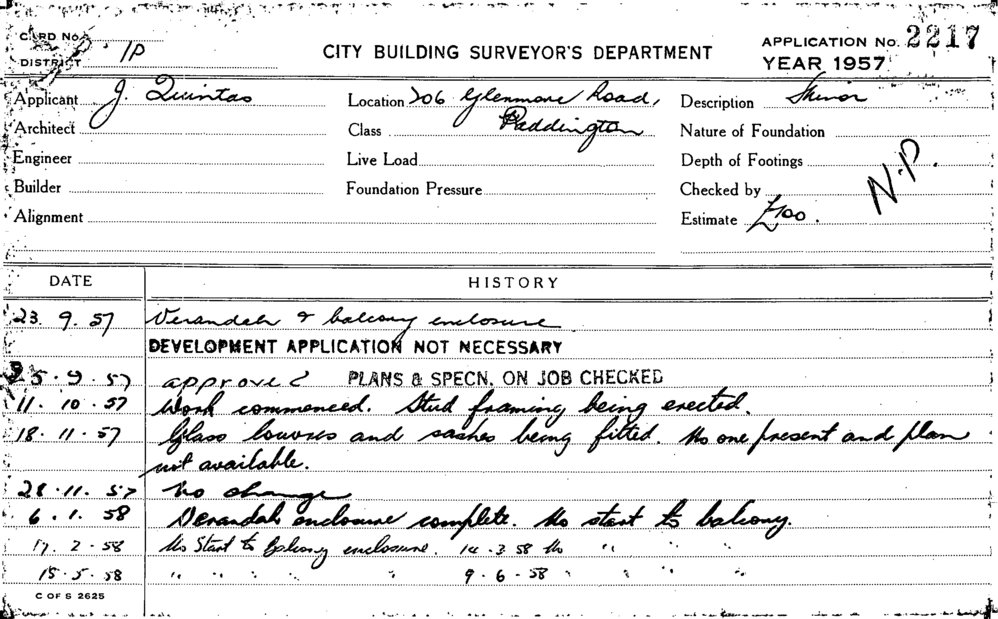 CARD No.
DISTRICT 1P
CITY BUILDING SURVEYOR'S DEPARTMENT
APPLICATION No. 2217
YEAR 1957
Applicant J. Quintas
Location 206 Glenmore Road,
Description Minor
Architect
Class Paddington
Nature of Foundation
Engineer
Live Load
Depth of Footings
N.P.
Builder
Foundation Pressure
Checked by
Alignment
Estimate £100.
DATE HISTORY
23. 9. 57 Verandah & balcony enclosure
DEVELOPMENT APPLICATION NOT NECESSARY
25. 9. 57 approved PLANS & SPECN. ON JOB CHECKED
11. 10. 57 Work commenced. Stud framing being erected.
18. 11. 57 Glass louvres and sashes being fitted. No one present and plan
not available.
28. 11. 57 No change
6. 1. 58 Verandah enclosure complete. No start to balcony.
17. 2. 58 No Start to Balcony enclosure. 14. 3 58 No " "
15. 5. 58 " " " " " 9. 6. 58 " " " "
C OF S 2625